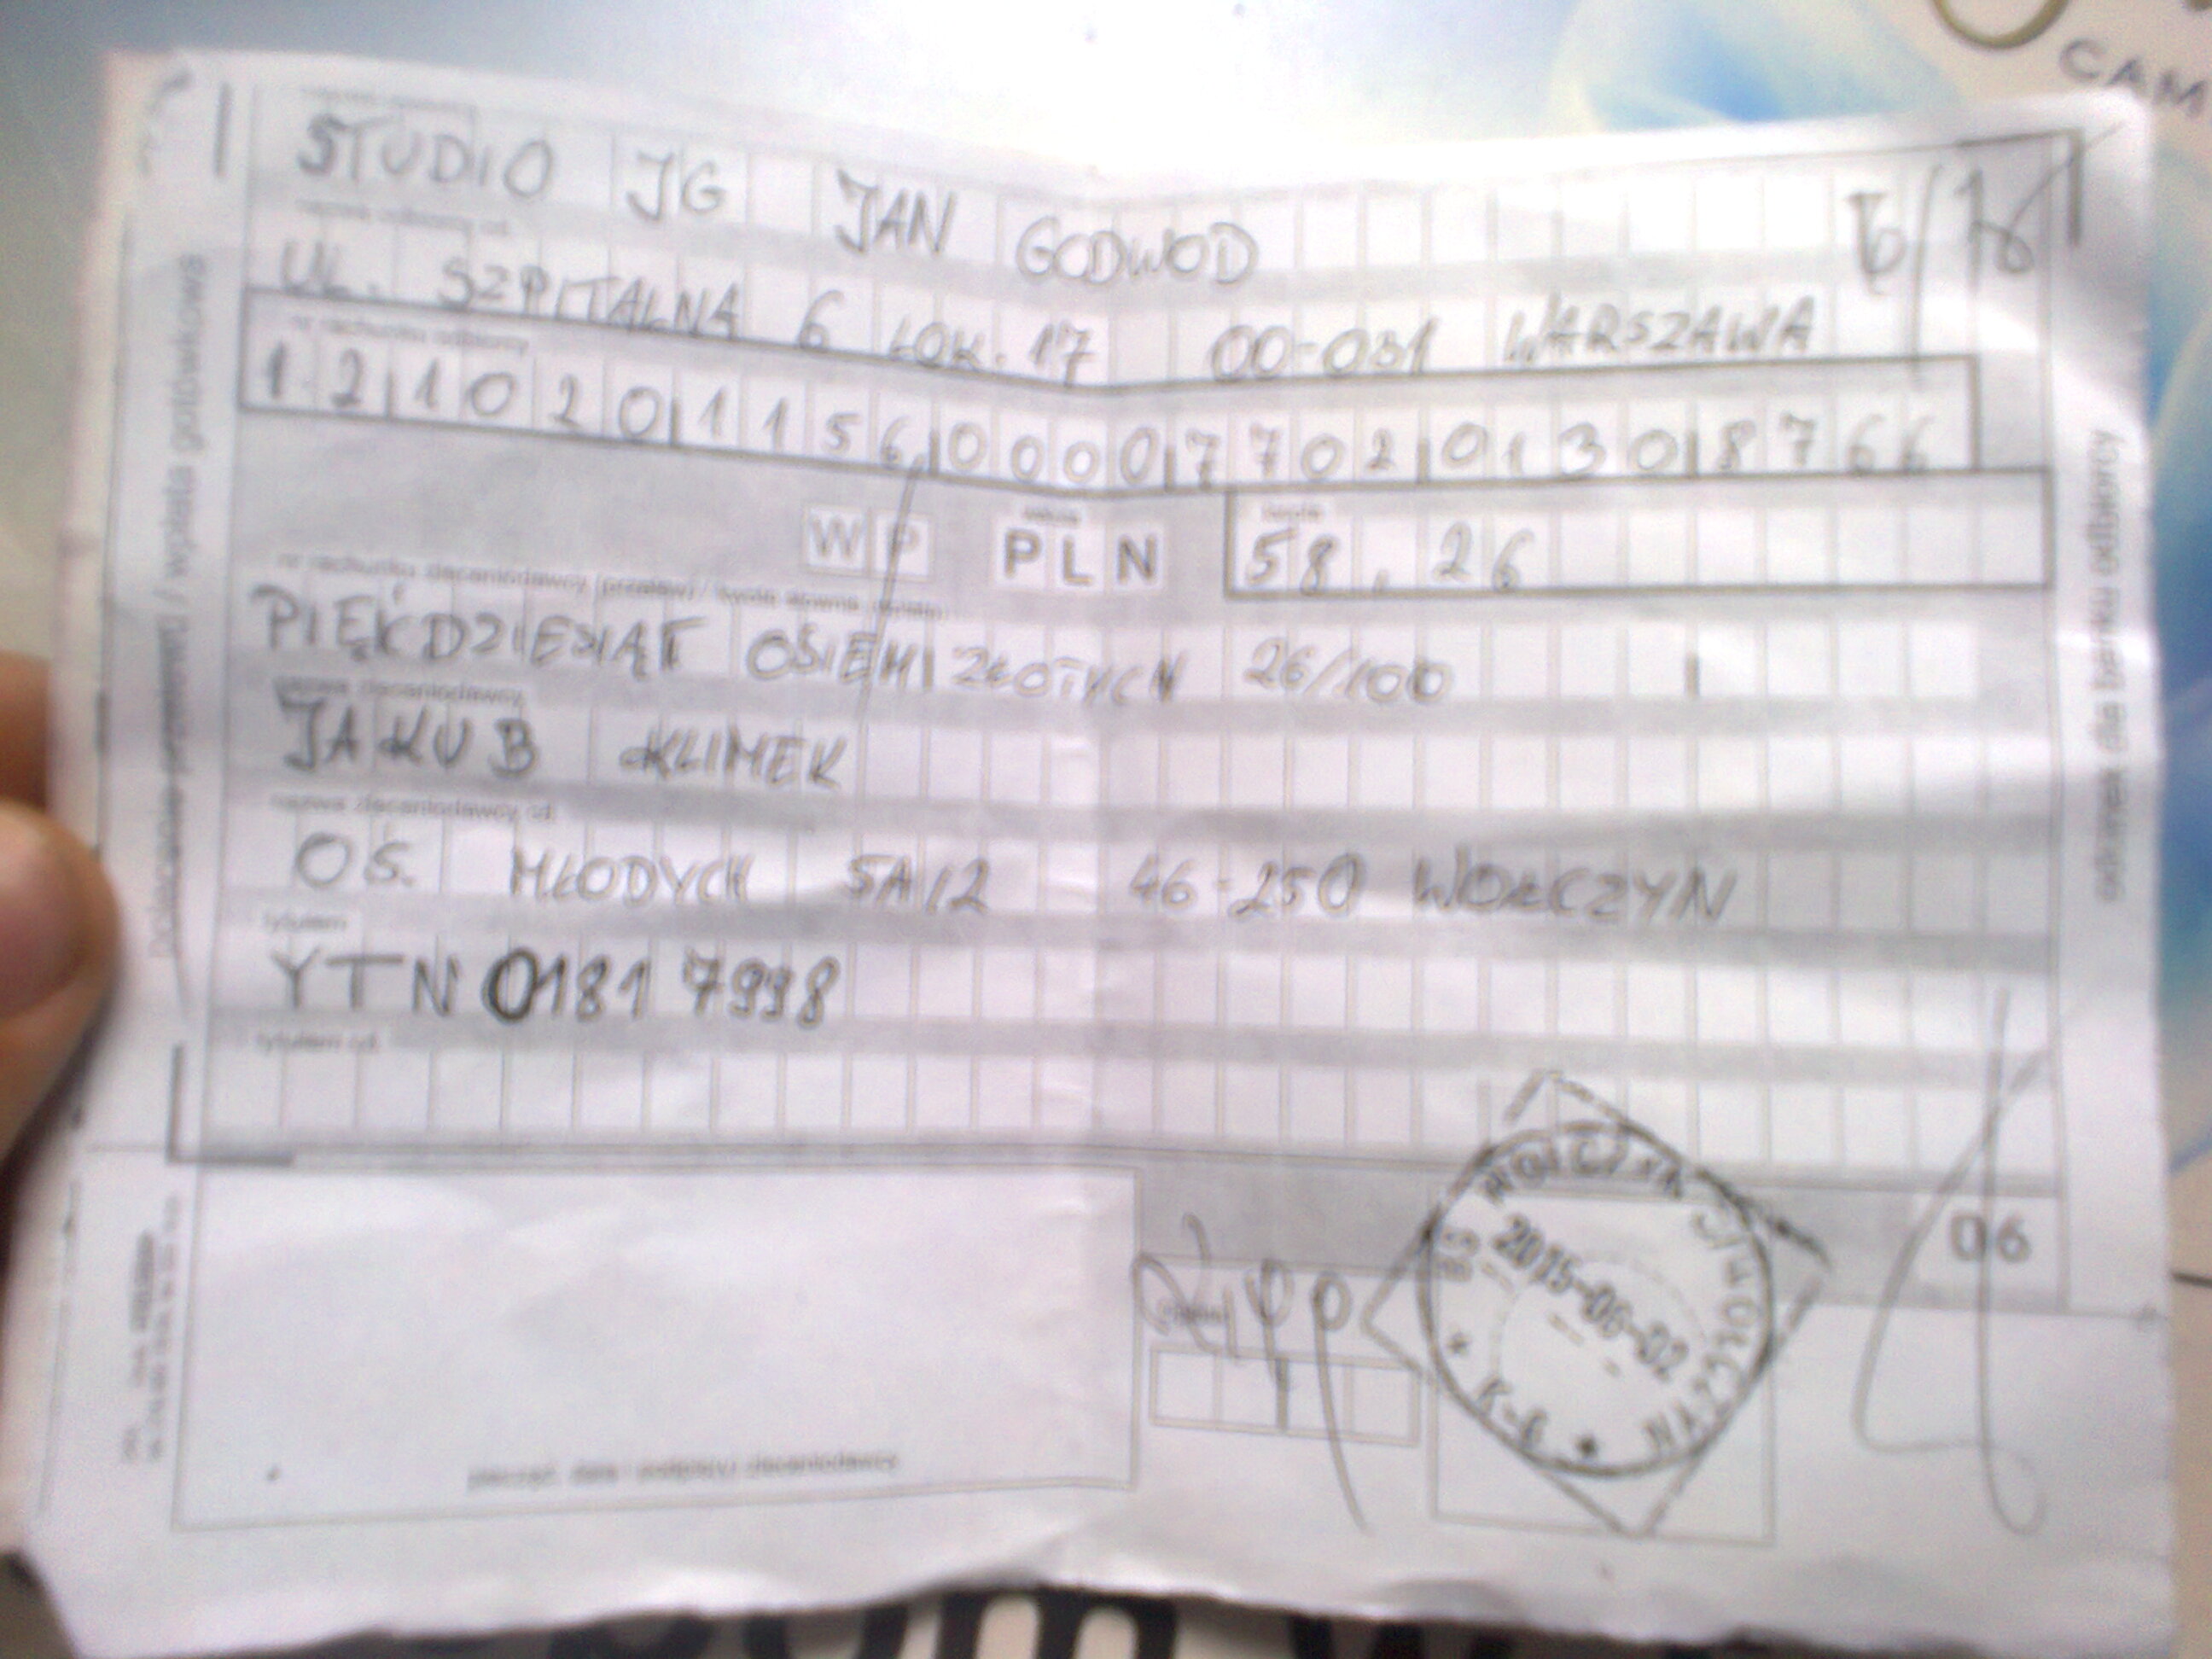 CAM
STUDIO JG JAN GODWOD
nazwa odbiorcy cd.
UL. SZPITALNA 6 LOK. 17 00-031 WARSZAWA
nr rachunku odbiorcy
12 1020 1156 0000 7702 0130 8766
W P PLN 58,26
nr rachunku zleceniodawcy (przelew) / kwota słownie (wpłata)
PIĘĆDZIESIĄT OSIEM ZŁOTYCH 26/100
nazwa zleceniodawcy
JAKUB KLIMEK
nazwa zleceniodawcy cd.
OŚ. MŁODYCH 5A/2 46-250 WOŁCZYN
tytułem
YTN 0181 7998
tytułem cd.
06
BS WOŁCZYN
2015-06-02
K-6
pieczęć, data i podpis(y) zleceniodawcy
polecenie przelewu / wpłata gotówkowa
odcinek dla banku odbiorcy